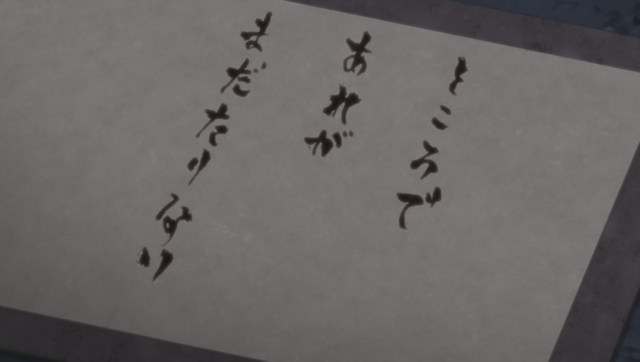 ところで
あれが
まだたりぬ